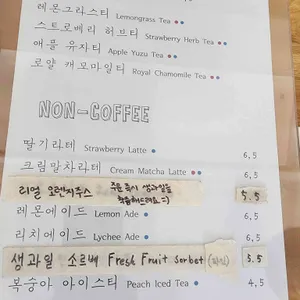 레몬그라스티 Lemongrass Tea
스트로베리 허브티 Strawberry Herb Tea
애플 유자티 Apple Yuzu Tea
로얄 캐모마일티 Royal Chamomile Tea
NON-COFFEE
딸기라떼 Strawberry Latte 6,5
크림말차라떼 Cream Matcha Latte 6,5
리얼 오렌지주스 주문 즉시 생과일을 착즙해드려요 :) 5.5
레몬에이드 Lemon Ade 6,5
리치에이드 Lychee Ade 6,5
생과일 소르베 Fresh Fruit Sorbet 5.5
복숭아 아이스티 Peach Iced Tea 4,5